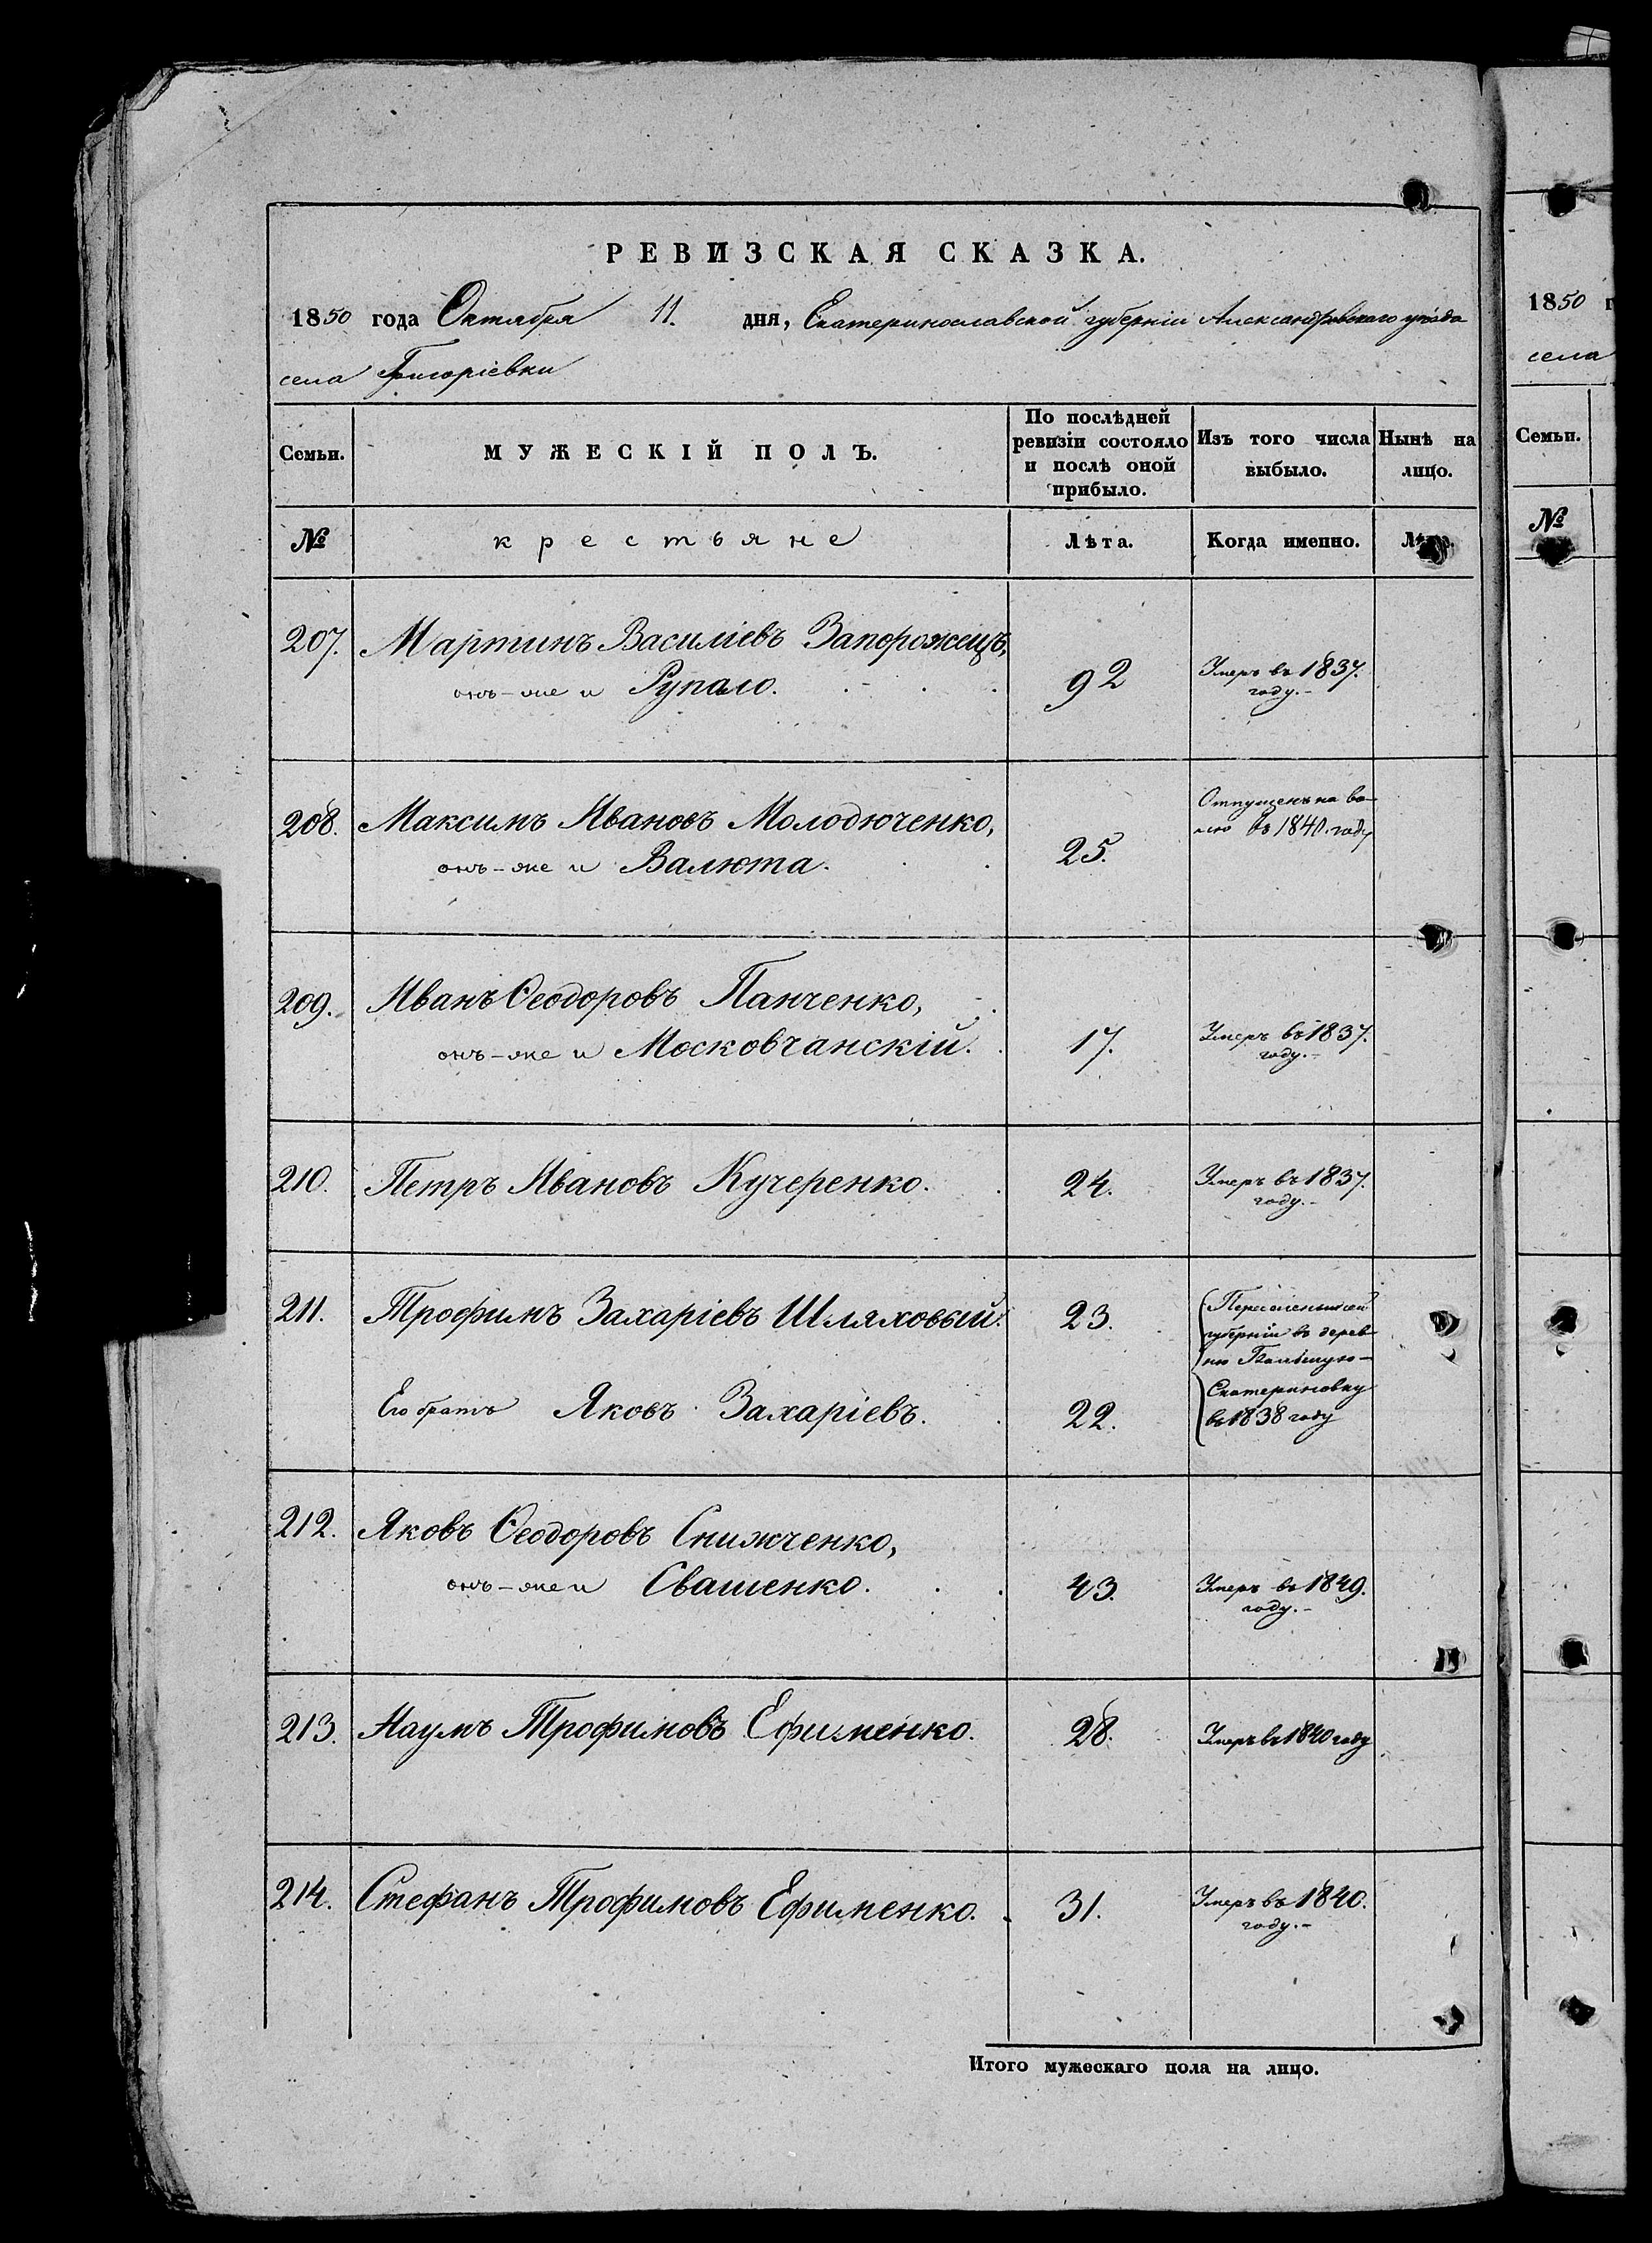 РЕВИЗСКАЯ СКАЗКА.
1850 года Октября 11. дня, Екатеринославской губерніи Александровскаго уѣзда
села Григоріевки
Семьи.
МУЖЕСКІЙ ПОЛЪ.
По послѣдней ревизіи состояло и послѣ оной прибыло.
Изъ того числа выбыло.
Нынѣ на лицо.
№ крестьяне Лѣта. Когда именно. Лѣта.
207. Мартинъ Василіевъ Запорожецъ,
онъ-же и Рупало. 92 Умеръ въ 1837.
году.-
208. Максимъ Ивановъ Молодюченко, Отпущенъ на во-
лю въ 1840. году
онъ-же и Валюта. 25.
209. Иванъ Ѳеодоровъ Панченко,
онъ-же и Московчанскій. 17. Умеръ въ 1837.
году.-
210. Петръ Ивановъ Кучеренко. 24. Умеръ въ 1837.
году.-
211. Трофимъ Захаріевъ Шляховый. 23.
губерніи въ дерев-
ню
Его братъ Яковъ Захаріевъ. 22. Екатериновку
въ 1838 году
212. Яковъ Ѳеодоровъ Снижченко,
онъ-же и Свашенко. 43. Умеръ въ 1849.
году.-
213. Наумъ Трофимовъ Ефименко. 28. Умеръ въ 1840 году
214. Стефанъ Трофимовъ Ефименко. 31. Умеръ въ 1840.
году.-
Итого мужескаго пола на лицо.
1850 г
села
Семьи.
№